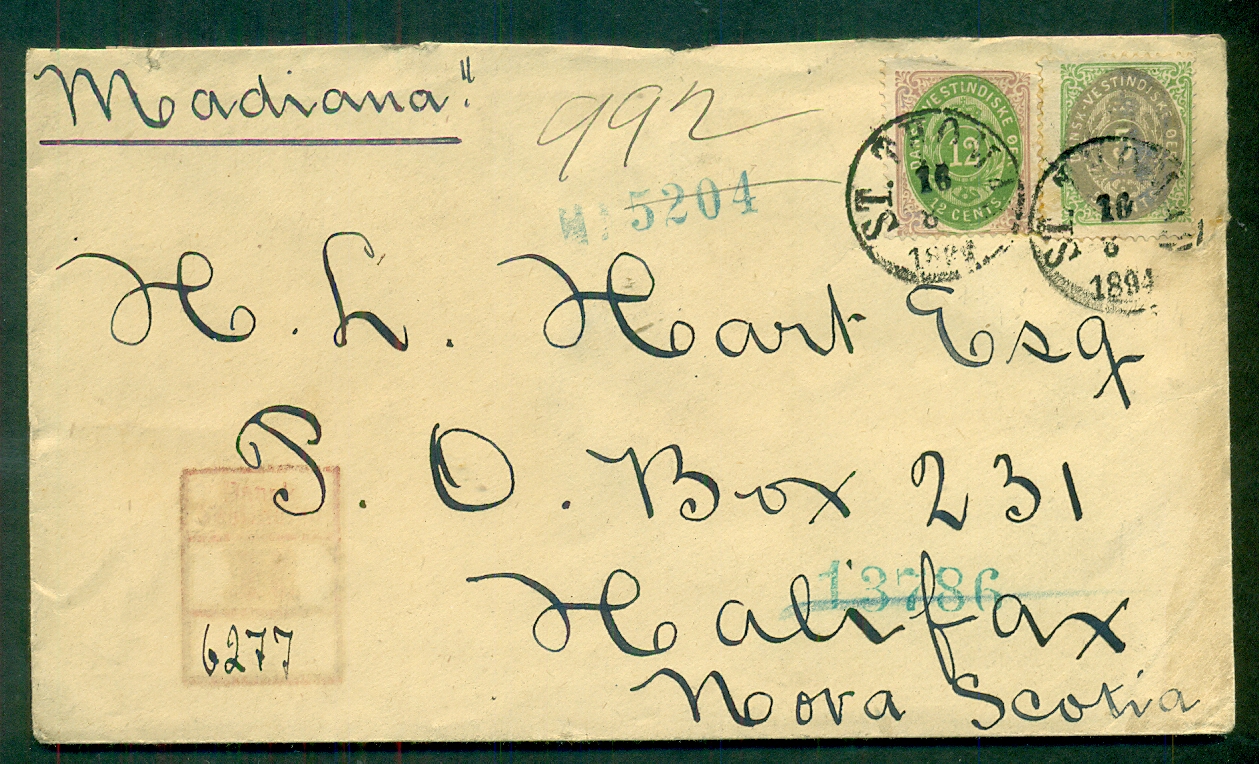 Madiana"
992
5204
DANSK VESTINDISKE ØER
12
12 CENTS
ST. THOMAS
16
8
1894
VESTINDISKE
ST. THOMAS
16
8
1894
H. L. Hart Esq
P. O. Box 231
13786
Halifax
Nova Scotia
6277